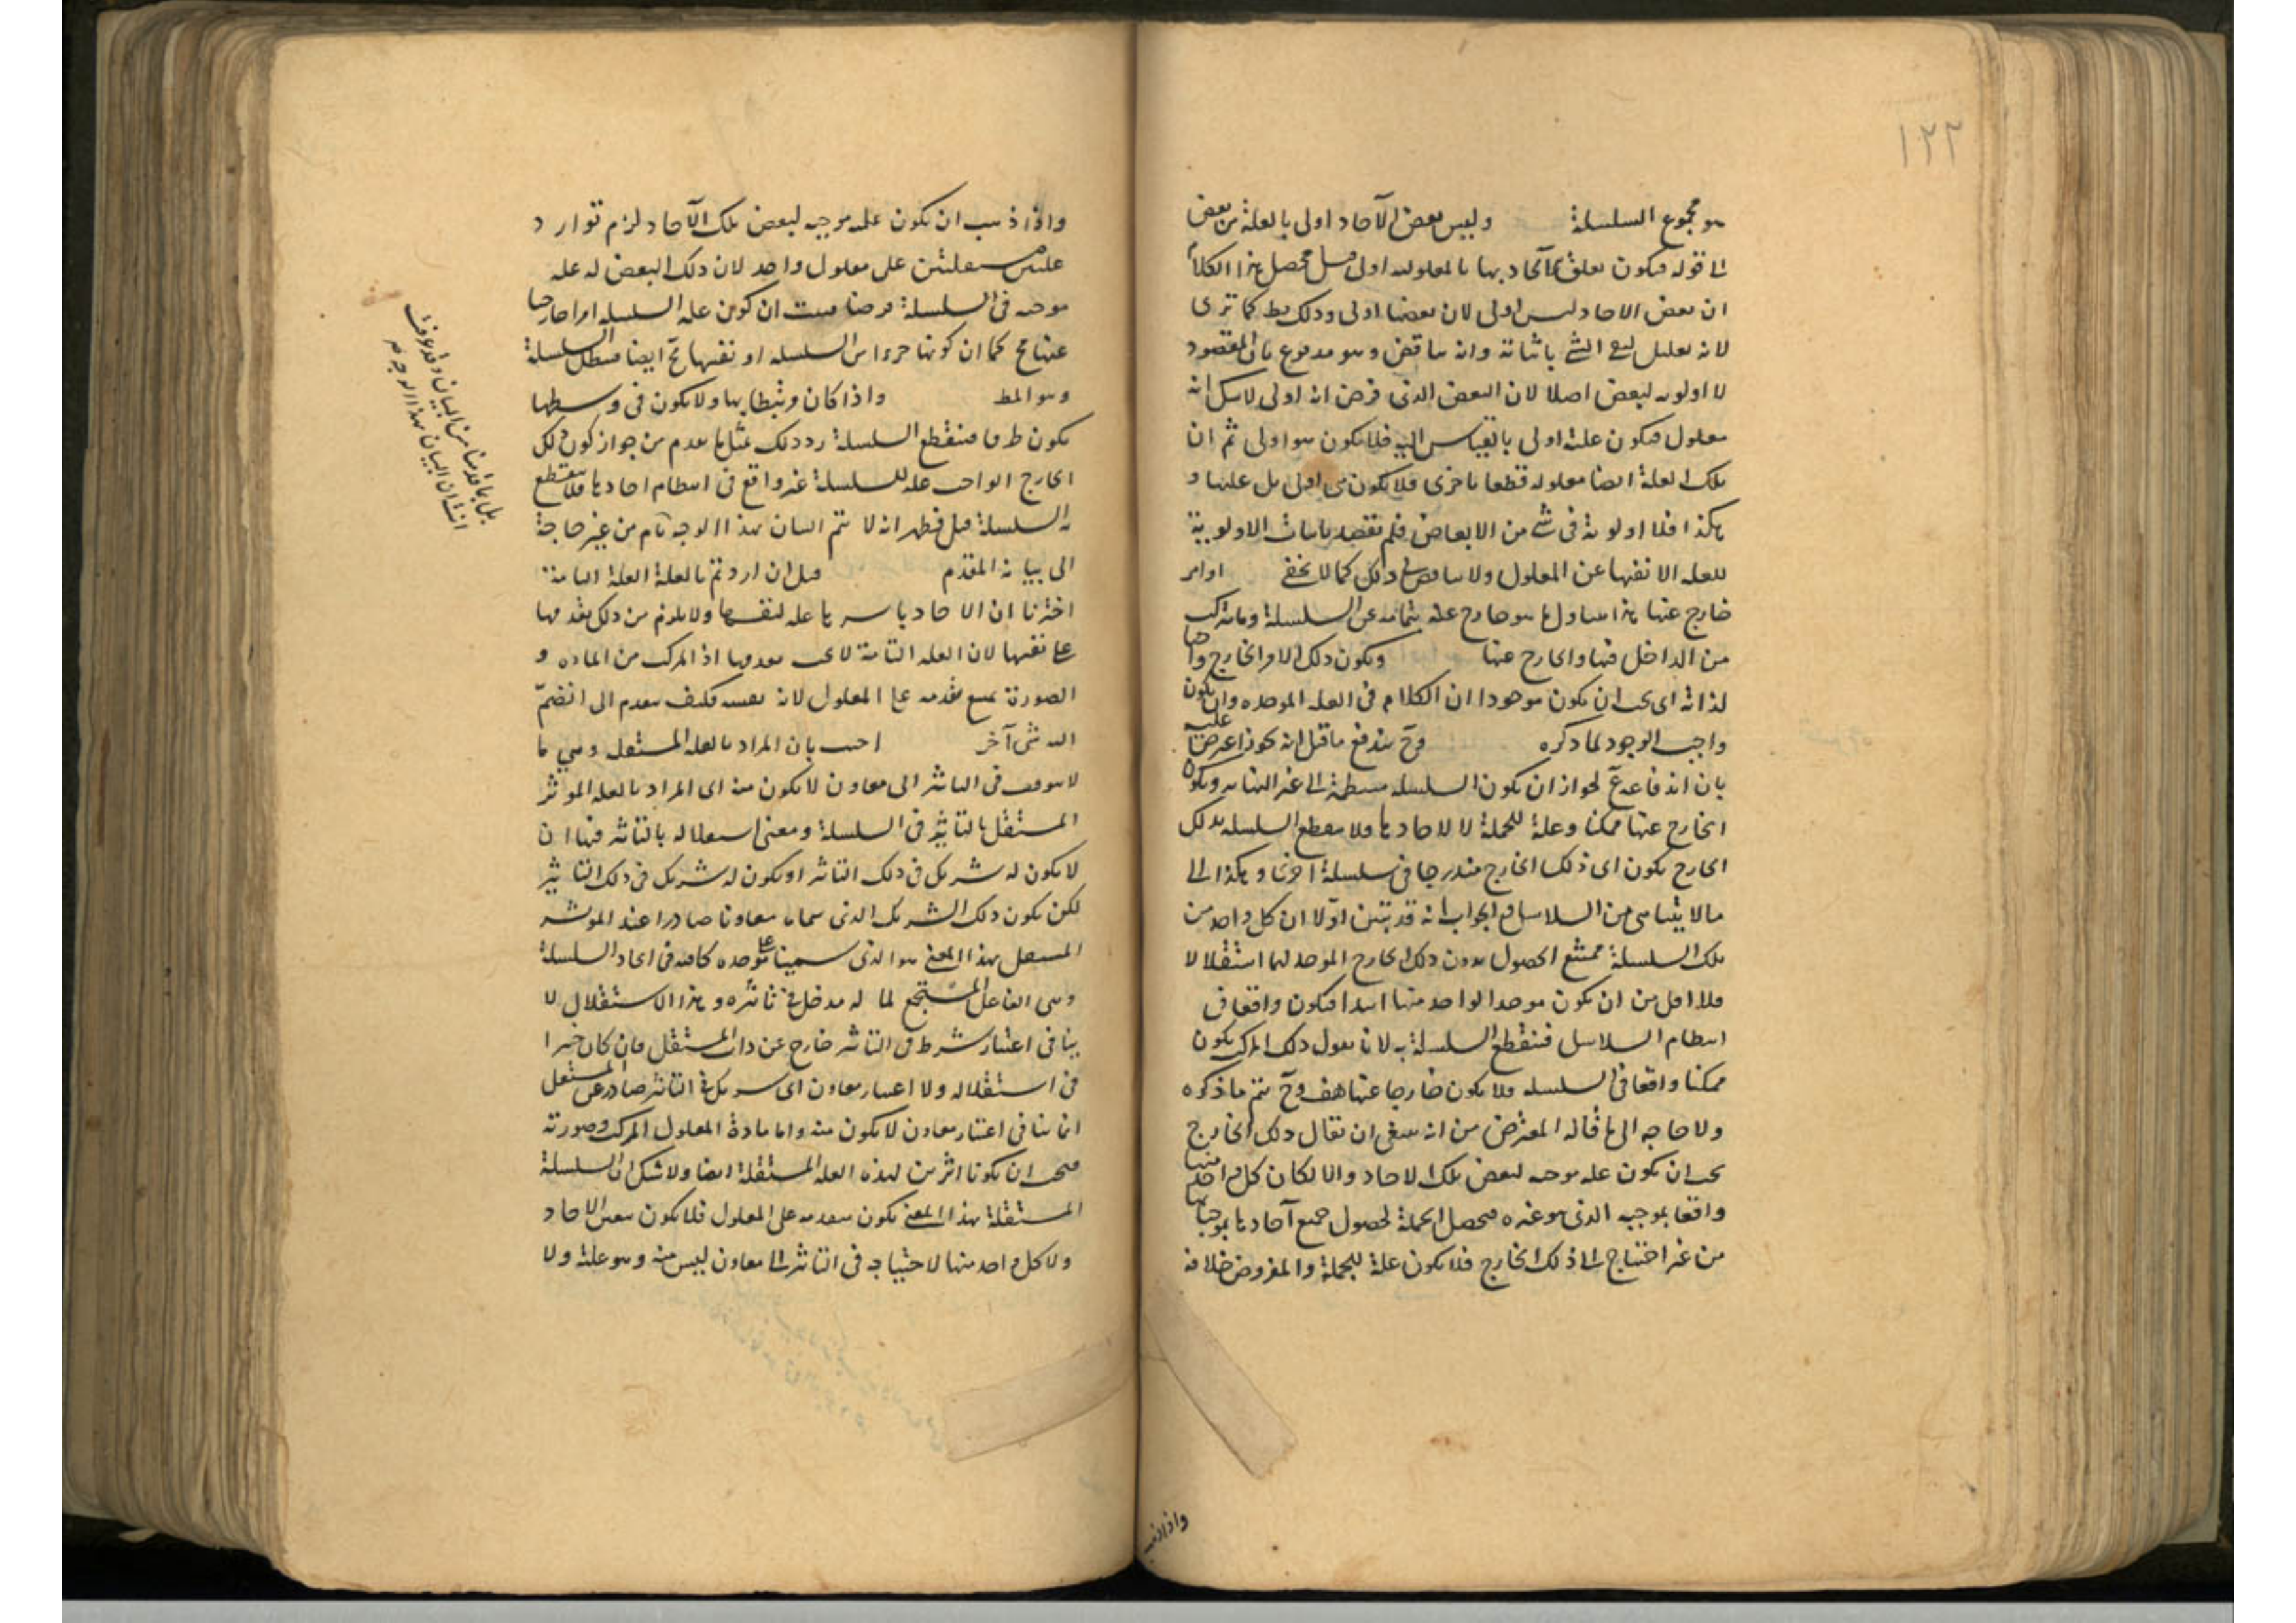 ١٢٢
هو مجموع السلسلة وليس بعض الآحاد اولى بالعلة من بعض
الى قوله فيكون تعلق الآحاد بها بالمعلولية اولى قيل محصل هذا الكلام
ان بعض الاحاد ليس اولى لان بعضها اولى وذلك بط كما ترى
لانه تعليل لنفى الشئ باثباته وانه تناقض وهو مدفوع بان المقصود
لا اولوية لبعض اصلا لان البعض الذى فرض انه اولى لا شك انه
معلول فيكون علته اولى بالقياس اليه فلا يكون هو اولى ثم ان
تلك العلة ايضا معلولة قطعا باخرى فلا يكون هى اولى بل علتها و
هكذا فلا اولوية فى شئ من الابعاض فلم نقصد باثبات الاولوية
للعلة الا نفيها عن المعلول ولا تناقض فى ذلك كما لا يخفى او امر
خارج عنها هذا يتناول ما هو خارج عنه بتمامه عن السلسلة وما يتركب
من الداخل فيها والخارج عنها ويكون ذلك الامر الخارج واجبا
لذاته اى يجب ان يكون موجودا اذ الكلام فى العلة الموجدة وان يكون
واجب الوجود لما ذكره وح يندفع ما قيل انه يجوز اعترض عليه
بان اندفاعه مم لجواز ان يكون السلسلة منبسطة الى غير النهاية ويكون
الخارج عنها ممكنا وعلة للجملة لا لاحادها ولا ينقطع السلسلة بذلك
الخارج يكون اى ذلك الخارج مندرجا فى سلسلة اخرى وهكذا الى
ما لا يتناهى من السلاسل والجواب انه قد تبين اولا ان كل واحد من
تلك السلسلة ممتنع الحصول بدون ذلك الخارج الموجد لها استقلالا
فلا اقل من ان يكون موجدا لواحد منها ابتداء فيكون واقعا فى
انتظام السلاسل فينقطع السلسلة به لانا نقول ذلك المركب يكون
ممكنا واقعا فى السلسلة فلا يكون خارجا عنها هف وح يتم ما ذكره
ولا حاجه الى ما قاله المعترض من انه ينبغى ان يقال ذلك الخارج
يجب ان يكون علة موجبة لبعض تلك الاحاد والا لكان كل واحد منها
واقعا بموجبه الذى هو غيره فيحصل الجملة لحصول جميع آحادها بموجباتها
من غير احتياج الى ذلك الخارج فلا يكون علة للجملة والمفروض خلافه
واذا ذهب
واذا ذهب ان يكون علة موجبه لبعض تلك الآحاد لزم توارد
علتين مستقلتين على معلول واحد لان ذلك البعض له علة
موجبة فى السلسلة فرضا فثبت ان كون علة السلسلة امرا خارجيا
عنها مح كما ان كونها جزءا من السلسلة او نفسها مح ايضا فبطل السلسلة
وهو المط واذا كان مرتبطا بها ولا يكون فى وسطها
يكون طرفا فينقطع السلسلة رد ذلك بمثل ما تقدم من جواز كون ذلك
الخارج الواجب علة للسلسلة غير واقع فى انتظام احادها فلا ينقطع
به السلسلة قيل فظهر انه لا يتم البيان بهذا الوجه تام من غير حاجة
الى بيانه المقدم قيل ان اردتم بالعلة العلة التامة
اخترنا ان الاحاد باسرها علة لنفسها ولا يلزم من ذلك تقدمها
على نفسها لان العلة التامة لا يجب تقدمها اذ المركب من المادة و
الصورة يمتنع تقدمه على المعلول لانه نفسه فكيف يتقدم الى انضم
اليه شئ آخر اجيب بان المراد بالعلة المستقل وهى ما
لا يتوقف فى التاثير الى معاون لا يكون منه اى المراد بالعلة المؤثر
المستقل بالتاثير فى السلسلة ومعنى استقلاله بالتاثير فيها ان
لا يكون له شريك فى ذلك التاثير او يكون له شريك فى ذلك التاثير
لكن يكون ذلك الشريك الذى سماه معاونا صادرا عند المؤثر
المستقل بهذا المعنى هو الذى سميناه علة موجدة كافية فى ايجاد السلسلة
وهى الفاعل المستجمع لما له مدخل فى تاثيره وهذا الاستقلال لا
ينافى اعتبار شرط فى التاثير خارج عن ذات المستقل فان كان خيرا
فى استقلاله ولا اعتبار معاون اى شريك فى التاثير صادر عن المستقل
انما ينافى اعتبار معاون لا يكون منه واما مادة المعلول المركب وصورته
فيجب ان يكونا اثرين لهذه العلة المستقلة ايضا ولا شك ان السلسلة
المستقلة بهذا المعنى يكون متقدمة على المعلول فلا يكون نفس الاحاد
ولا كل واحد منها لاحتياجه فى التاثير الى معاون ليس منه وهو علته ولا
بل بما قدمنا من البيان وقد عرفت
انشان البيان بهذا الوجه